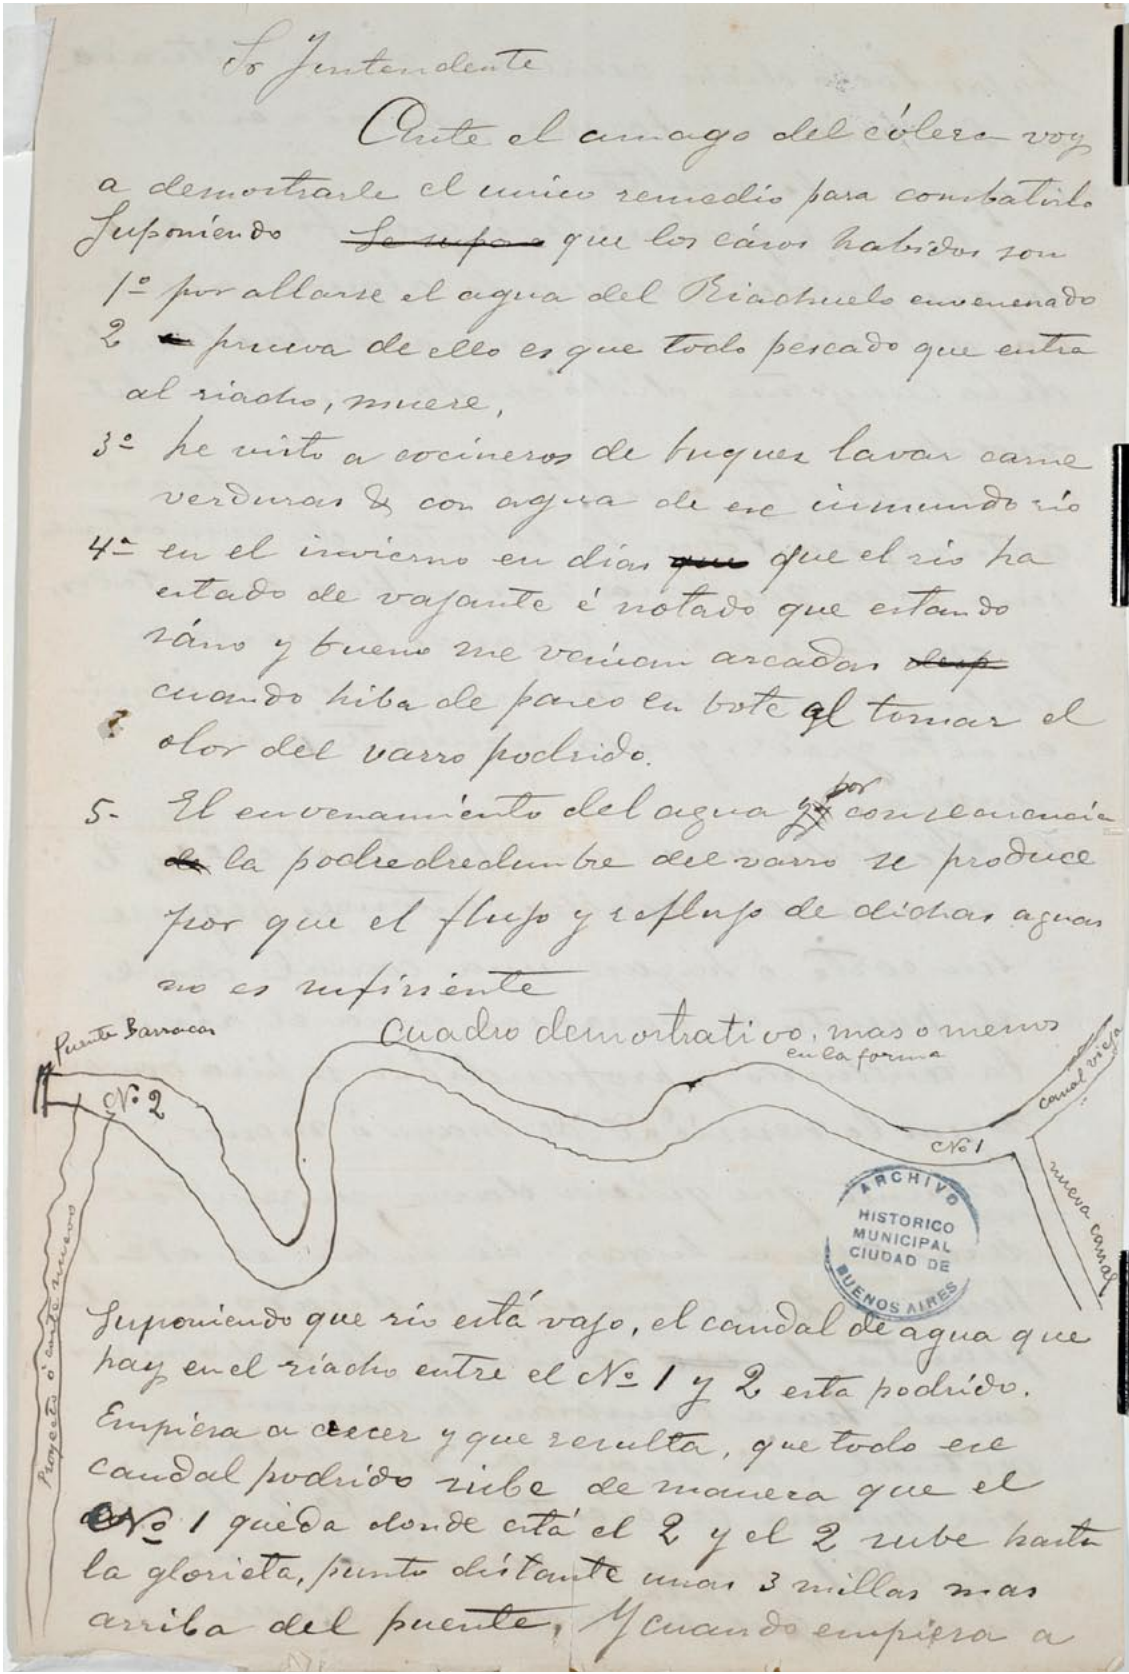 Sr Yntendente
Ante el amago del cólera voy
a demostrarle el unico remedio para combatirlo
Suponiendo ~~Se supone~~ que los cásos habidos son
1º por allarse el agua del Riachuelo envenenado
2 prueva de ello es que todo pescado que entra
al riacho, muere,
3º he visto a cocineros de buques lavar carne
verduras & con agua de ese inmundo río
4ª en el invierno en días ~~que~~ que el rio ha
estado de vajante é notado que estando
sáno y bueno me venían arcadas ~~desp~~
cuando hiba de paseo en bote al tomar el
olor del varro podrido.
5- El envenamiento del agua por consecuencia
~~de~~ la podredredumbre del varro se produce
por que el flujo y reflujo de dichas aguas
no es sufisiente
Cuadro demostrativo, mas o menos
en la forma
Puente Barracas
Nº 2
Nº 1
canal vieja
nueva canal
Proyecto ó corte nuevo
ARCHIVO
HISTORICO
MUNICIPAL
CIUDAD DE
BUENOS AIRES
Suponiendo que rio está vajo, el caudal de agua que
hay en el ríacho entre el Nº 1 y 2 esta podrído.
Empiesa a crecer y que resulta, que todo ese
caudal podrido sube de manera que el
Nº 1 quéda donde está el 2 y el 2 sube hasta
la glorieta, punto dístante unas 3 millas mas
arriba del puente, Y cuando empiesa a